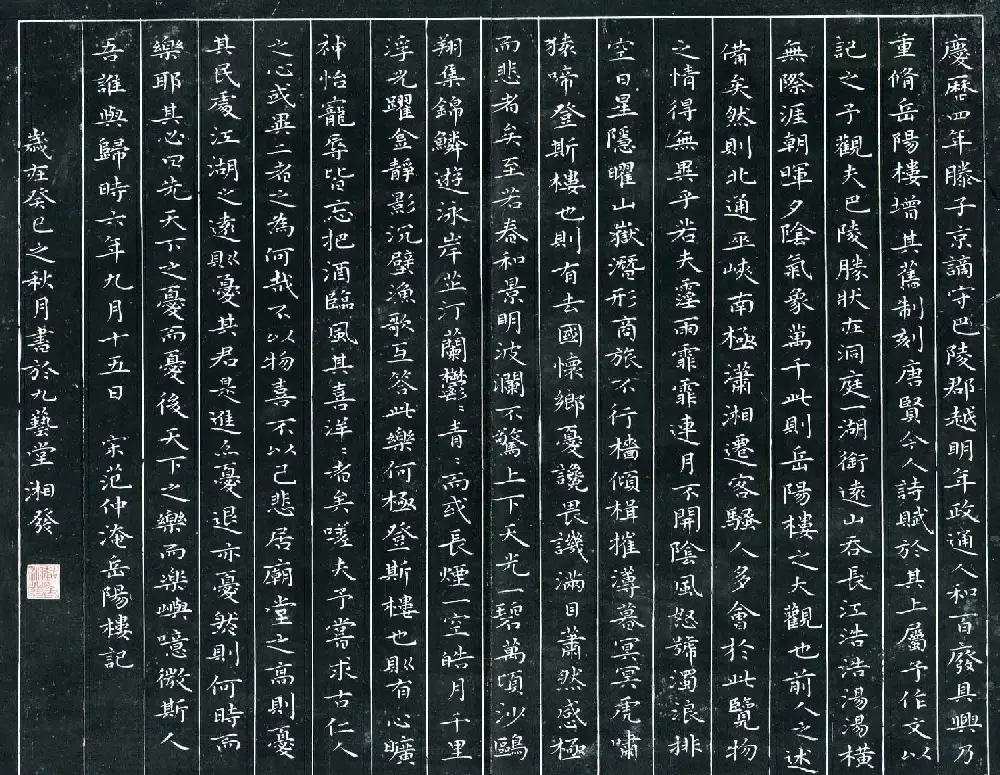 慶曆四年滕子京謫守巴陵郡越明年政通人和百廢具興乃
重脩岳陽樓增其舊制刻唐賢今人詩賦於其上屬予作文以
記之予觀夫巴陵勝狀在洞庭一湖銜遠山吞長江浩浩湯湯橫
無際涯朝暉夕陰氣象萬千此則岳陽樓之大觀也前人之述
備矣然則北通巫峽南極瀟湘遷客騷人多會於此覽物
之情得無異乎若夫霪雨霏霏連月不開陰風怒號濁浪排
空日星隱曜山嶽潛形商旅不行檣傾楫摧薄暮冥冥虎嘯
猿啼登斯樓也則有去國懷鄉憂讒畏譏滿目蕭然感極
而悲者矣至若春和景明波瀾不驚上下天光一碧萬頃沙鷗
翔集錦鱗遊泳岸芷汀蘭鬱〻青〻而或長煙一空皓月千里
浮光躍金靜影沉壁漁歌互答此樂何極登斯樓也則有心曠
神怡寵辱皆忘把酒臨風其喜洋〻者矣嗟夫予嘗求古仁人
之心或異二者之為何哉不以物喜不以己悲居廟堂之高則憂
其民處江湖之遠則憂其君是進亦憂退亦憂然則何時而
樂耶其必曰先天下之憂而憂後天下之樂而樂嶼噫微斯人
吾誰與歸時六年九月十五日 宋范仲淹岳陽樓記
歲在癸巳之秋月書於九藝堂湘發